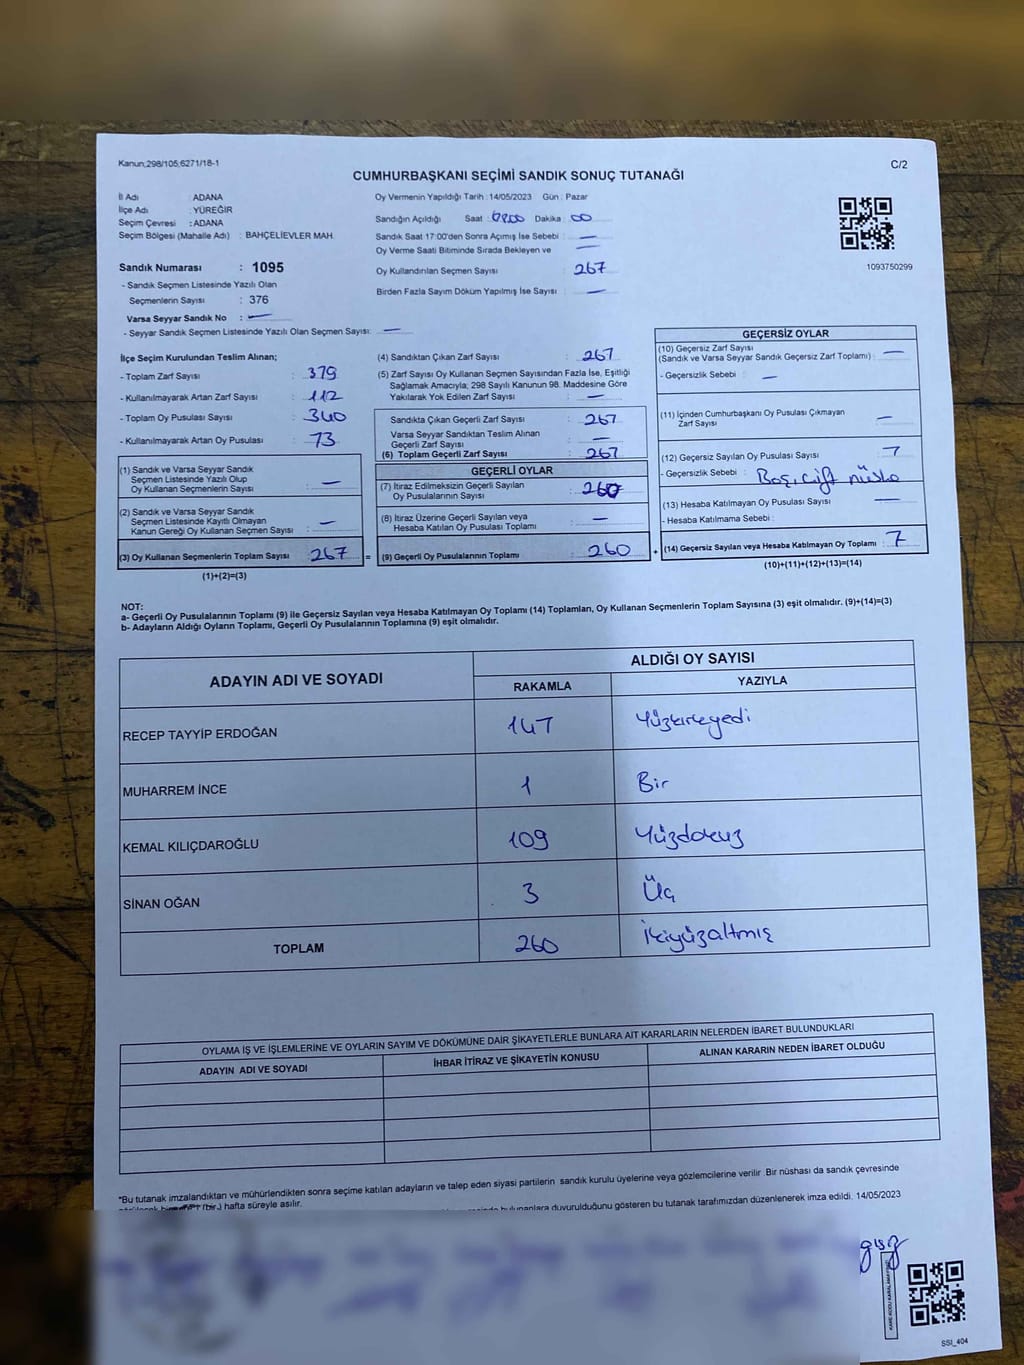 Kanun;298/105;6271/18-1
C/2
CUMHURBAŞKANI SEÇİMİ SANDIK SONUÇ TUTANAĞI
İl Adı : ADANA
İlçe Adı : YÜREĞİR
Seçim Çevresi : ADANA
Seçim Bölgesi (Mahalle Adı) : BAHÇELİEVLER MAH.
Sandık Numarası : 1095
- Sandık Seçmen Listesinde Yazılı Olan
Seçmenlerin Sayısı : 376
Varsa Seyyar Sandık No : —
- Seyyar Sandık Seçmen Listesinde Yazılı Olan Seçmen Sayısı: —
Oy Vermenin Yapıldığı Tarih : 14/05/2023 Gün : Pazar
Sandığın Açıldığı Saat : Dakika : 00
Sandık Saat 17:00'den Sonra Açımış İse Sebebi : —
Oy Verme Saati Bitiminde Sırada Bekleyen ve —
Oy Kullandırılan Seçmen Sayısı : 267
Birden Fazla Sayım Döküm Yapılmış İse Sayısı : —
1093750299
İlçe Seçim Kurulundan Teslim Alınan;
- Toplam Zarf Sayısı : 379
- Kullanılmayarak Artan Zarf Sayısı : 112
- Toplam Oy Pusulası Sayısı : 340
- Kullanılmayarak Artan Oy Pusulası : 73
(1) Sandık ve Varsa Seyyar Sandık
Seçmen Listesinde Yazılı Olup
Oy Kullanan Seçmenlerin Sayısı : —
(2) Sandık ve Varsa Seyyar Sandık
Seçmen Listesinde Kayıtlı Olmayan
Kanun Gereği Oy Kullanan Seçmen Sayısı : —
(3) Oy Kullanan Seçmenlerin Toplam Sayısı : 267 =
(1)+(2)=(3)
(4) Sandıktan Çıkan Zarf Sayısı : 267
(5) Zarf Sayısı Oy Kullanan Seçmen Sayısından Fazla İse, Eşitliği
Sağlamak Amacıyla; 298 Sayılı Kanunun 98. Maddesine Göre
Yakılarak Yok Edilen Zarf Sayısı : —
Sandıkta Çıkan Geçerli Zarf Sayısı : 267
Varsa Seyyar Sandıktan Teslim Alınan
Geçerli Zarf Sayısı : —
(6) Toplam Geçerli Zarf Sayısı : 267
GEÇERLİ OYLAR
(7) İtiraz Edilmeksizin Geçerli Sayılan
Oy Pusulalarının Sayısı : 260
(8) İtiraz Üzerine Geçerli Sayılan veya
Hesaba Katılan Oy Pusulası Toplamı : —
(9) Geçerli Oy Pusulalarının Toplamı : 260 +
GEÇERSİZ OYLAR
(10) Geçersiz Zarf Sayısı
(Sandık ve Varsa Seyyar Sandık Geçersiz Zarf Toplamı) : —
- Geçersizlik Sebebi : —
(11) İçinden Cumhurbaşkanı Oy Pusulası Çıkmayan
Zarf Sayısı : —
(12) Geçersiz Sayılan Oy Pusulası Sayısı : 7
- Geçersizlik Sebebi : Boş, çift nüsha
(13) Hesaba Katılmayan Oy Pusulası Sayısı : —
- Hesaba Katılmama Sebebi :
(14) Geçersiz Sayılan veya Hesaba Katılmayan Oy Toplamı : 7
(10)+(11)+(12)+(13)=(14)
NOT:
a- Geçerli Oy Pusulalarının Toplamı (9) ile Geçersiz Sayılan veya Hesaba Katılmayan Oy Toplamı (14) Toplamları, Oy Kullanan Seçmenlerin Toplam Sayısına (3) eşit olmalıdır. (9)+(14)=(3)
b- Adayların Aldığı Oyların Toplamı, Geçerli Oy Pusulalarının Toplamına (9) eşit olmalıdır.
ADAYIN ADI VE SOYADI
ALDIĞI OY SAYISI
RAKAMLA YAZIYLA
RECEP TAYYİP ERDOĞAN 147 Yüzkırkyedi
MUHARREM İNCE 1 Bir
KEMAL KILIÇDAROĞLU 109 Yüzdokuz
SİNAN OĞAN 3 Üç
TOPLAM 260 İkiyüzaltmış
OYLAMA İŞ VE İŞLEMLERİNE VE OYLARIN SAYIM VE DÖKÜMÜNE DAİR ŞİKAYETLERLE BUNLARA AİT KARARLARIN NELERDEN İBARET BULUNDUKLARI
ADAYIN ADI VE SOYADI İHBAR İTİRAZ VE ŞİKAYETİN KONUSU ALINAN KARARIN NEDEN İBARET OLDUĞU
*Bu tutanak imzalandıktan ve mühürlendikten sonra seçime katılan adayların ve talep eden siyasi partilerin sandık kurulu üyelerine veya gözlemcilerine verilir. Bir nüshası da sandık çevresinde
(bir.) hafta süreyle asılır.
bulunanlara duyurulduğunu gösteren bu tutanak tarafımızdan düzenlenerek imza edildi. 14/05/2023
SSI_404